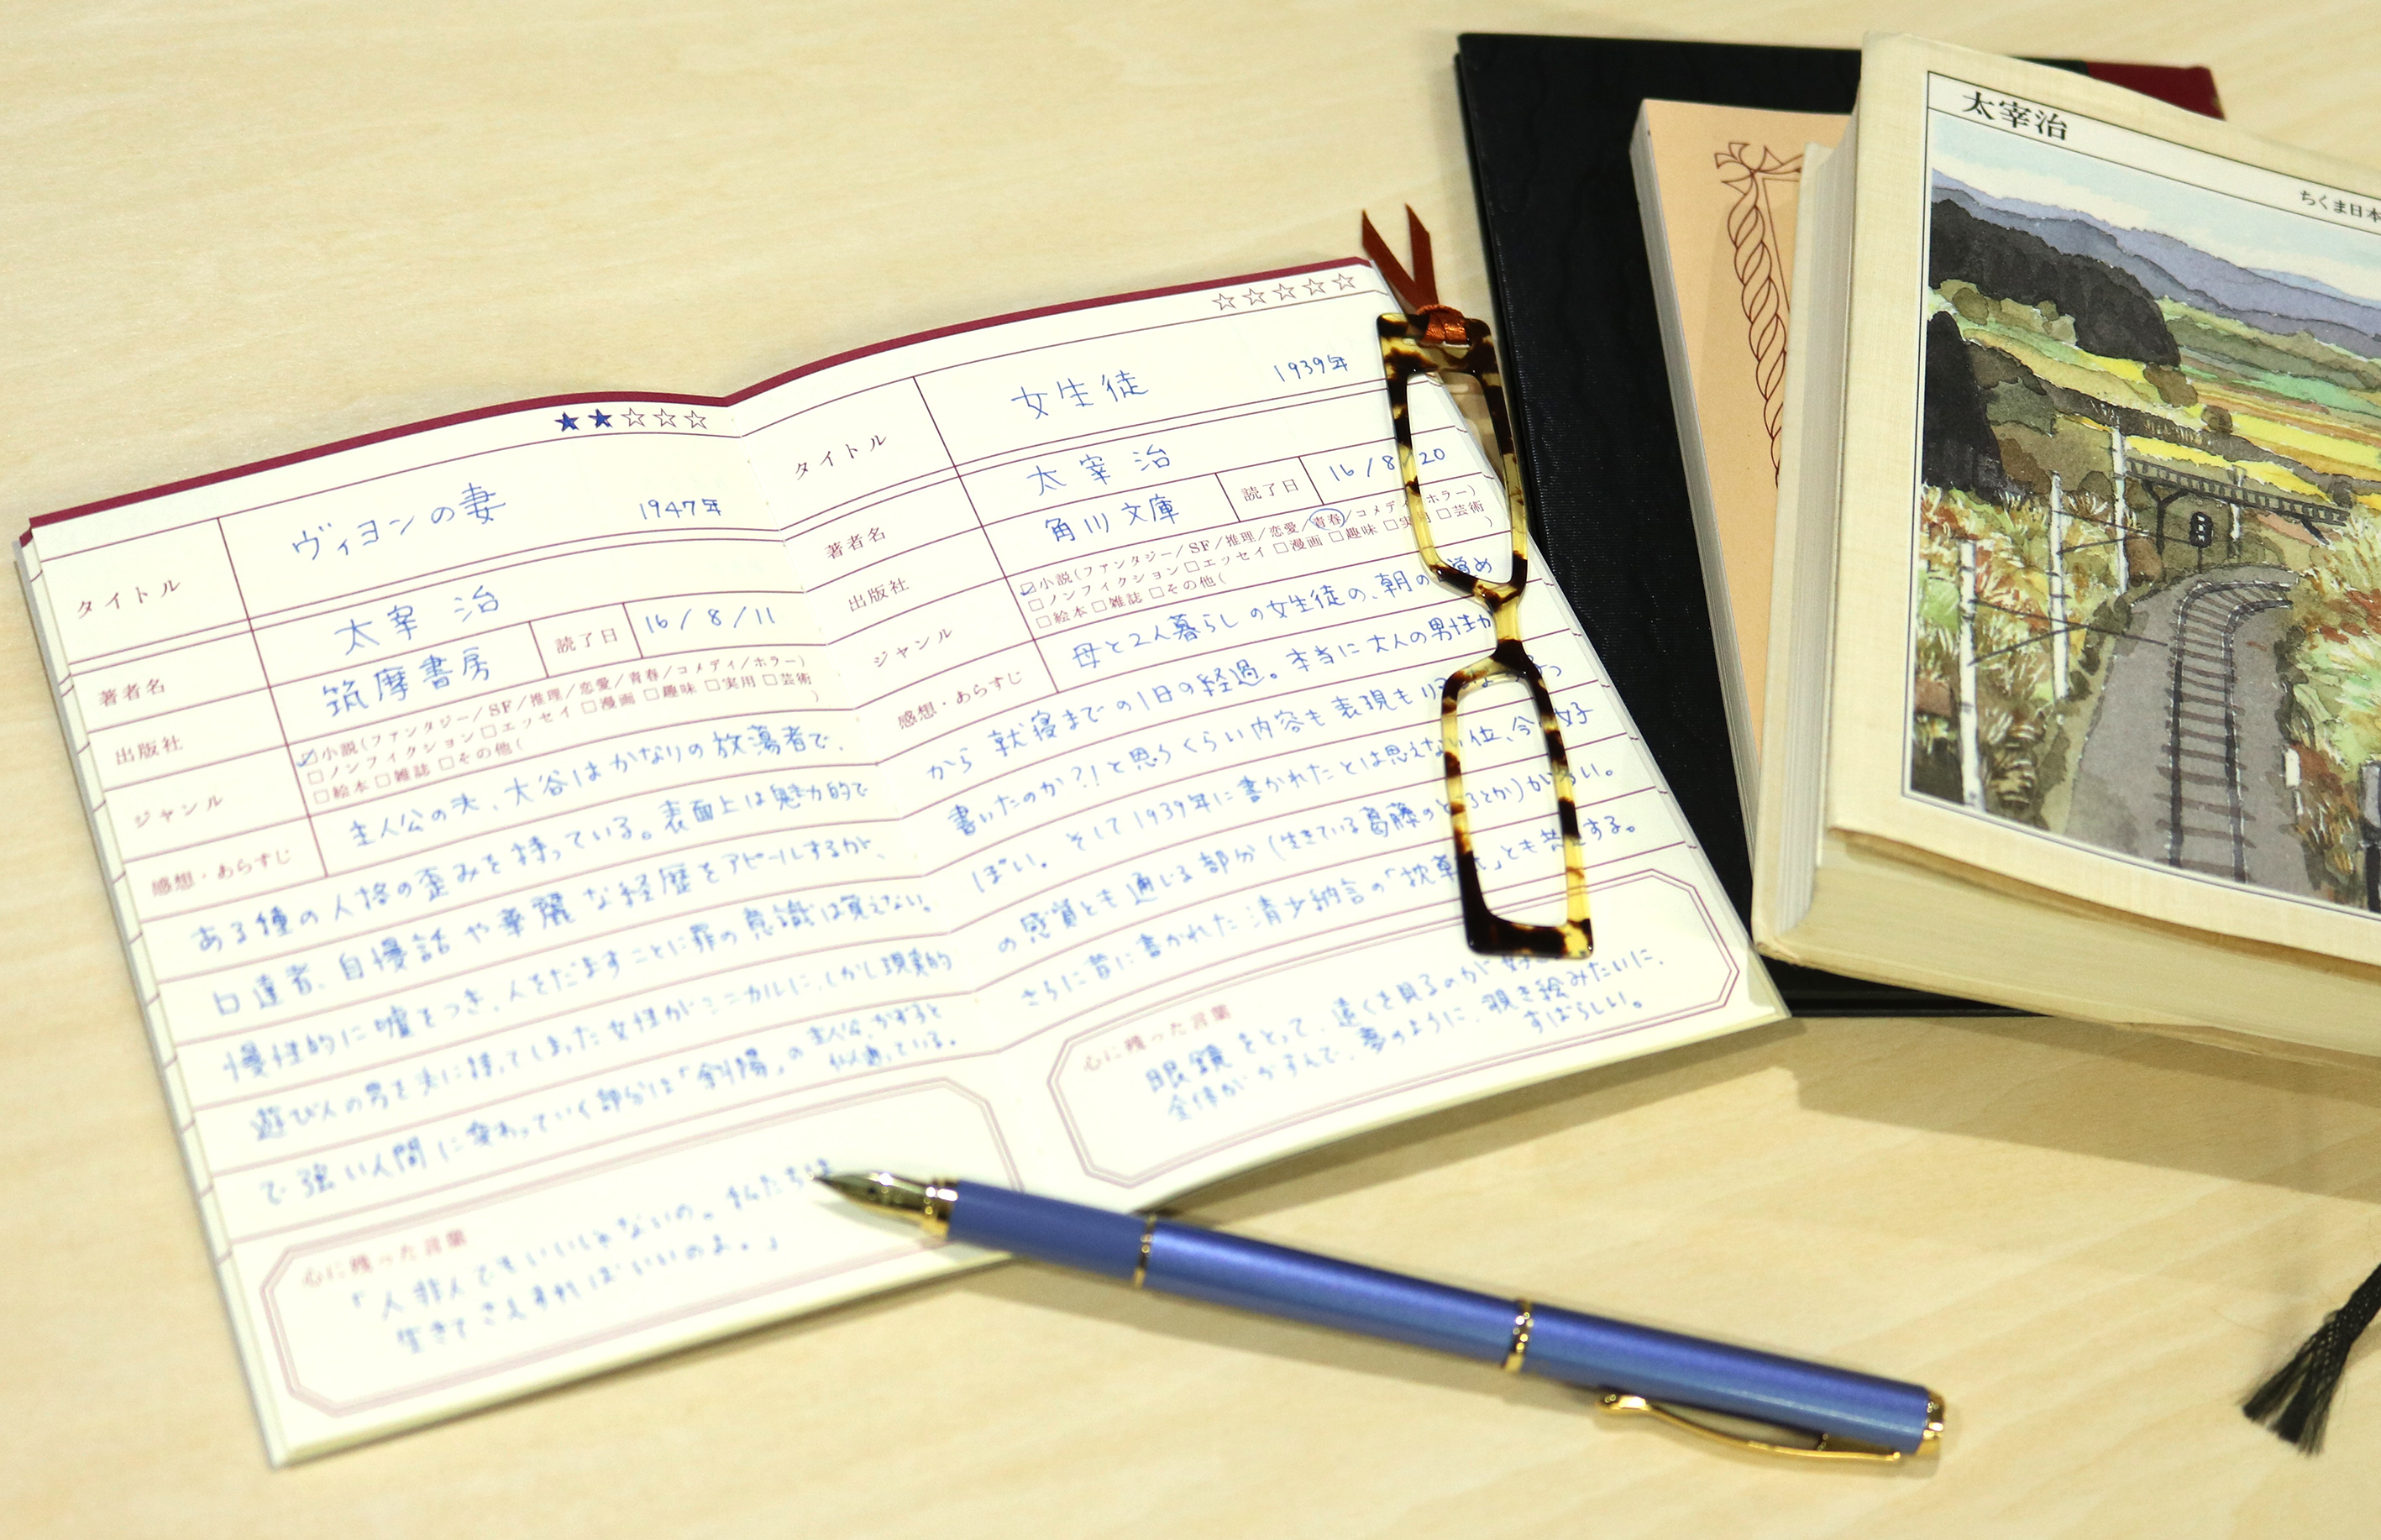 ★★☆☆☆
タイトル
ヴィヨンの妻 1947年
著者名
太宰 治
読了日
16/8/11
出版社
筑摩書房
ジャンル
☑小説(ファンタジー/SF/推理/恋愛/青春/コメディ/ホラー)
□ノンフィクション □エッセイ □漫画 □趣味 □実用 □芸術
□絵本 □雑誌 □その他( )
感想・あらすじ
主人公の夫、大谷はかなりの放蕩者で、
ある種の人格の歪みを持っている。表面上は魅力的で
口達者、自慢話や華麗な経歴をアピールするが、
慢性的に嘘をつき、人をだますことに罪の意識は覚えない。
遊び人の男を夫に持ってしまった女性がシニカルに、しかし現実的
で強い人間に変わっていく部分は「斜陽」の主人公、かずると
似通っている。
心に残った言葉
「人非人でもいいじゃないの。私たちは
生きてさえすればいいのよ。」
☆☆☆☆☆
タイトル
女生徒 1939年
著者名
太宰 治
読了日
16/8 20
出版社
角川文庫
ジャンル
☑小説(ファンタジー/SF/推理/恋愛/青春/コメディ ホラー)
□ノンフィクション □エッセイ □漫画 □趣味 □実用 □芸術
□絵本 □雑誌 □その他( )
感想・あらすじ
母と2人暮らしの女生徒の、朝の 覚め
から 就寝までの1日の経過。本当に大人の男性が
書いたのか?!と思うくらい内容も表現も
ぽい。そして1939年に書かれたとは思えない位、今 女子
の感覚とも通じる部分(生きている葛藤のところとか)が い。
さらに昔に書かれた清少納言の「枕草 」とも共 する。
心に残った言葉
眼鏡をとって、遠くを見るのが好
全体がかすんで、夢のように、覗き絵みたいに、
すばらしい。
太宰治
ちくま日本